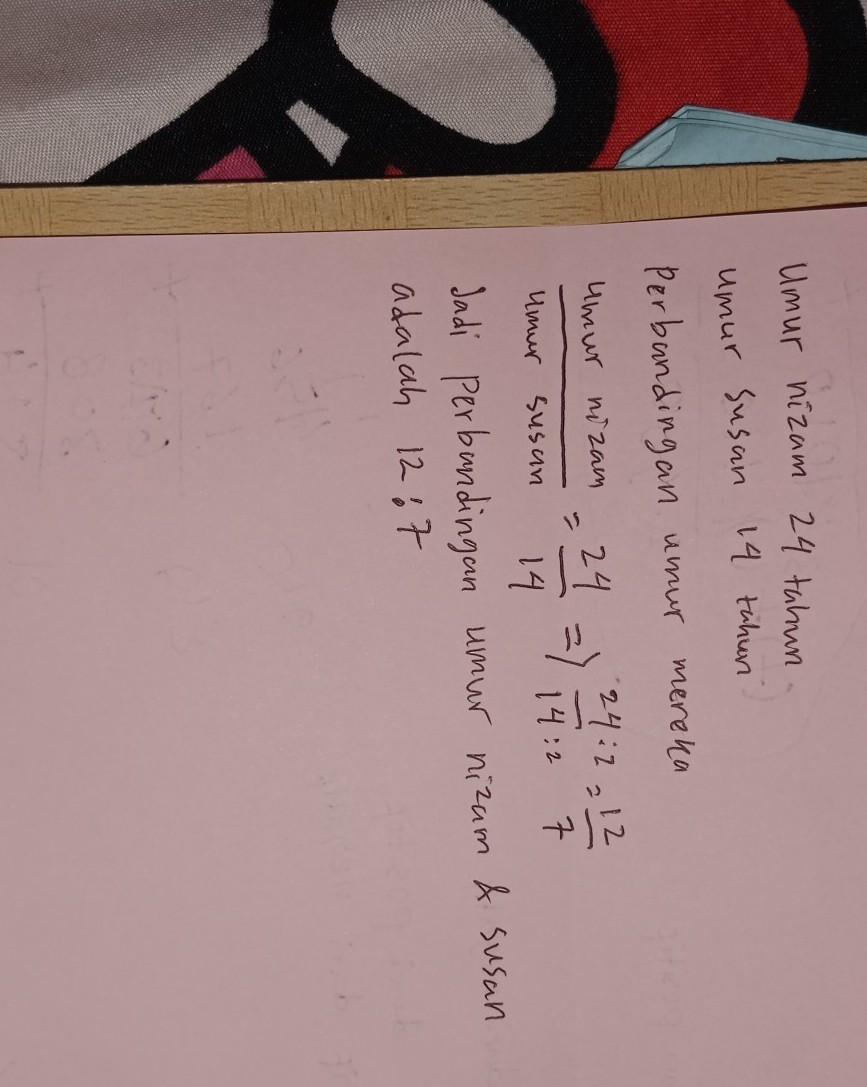 Umur nizam 24 tahun
umur susan 14 tahun
Perbandingan umur mereka
umur nizam = 24 => 24:2 = 12
umur susan 14 14:2 7
Jadi perbandingan umur nizam & susan
adalah 12:7